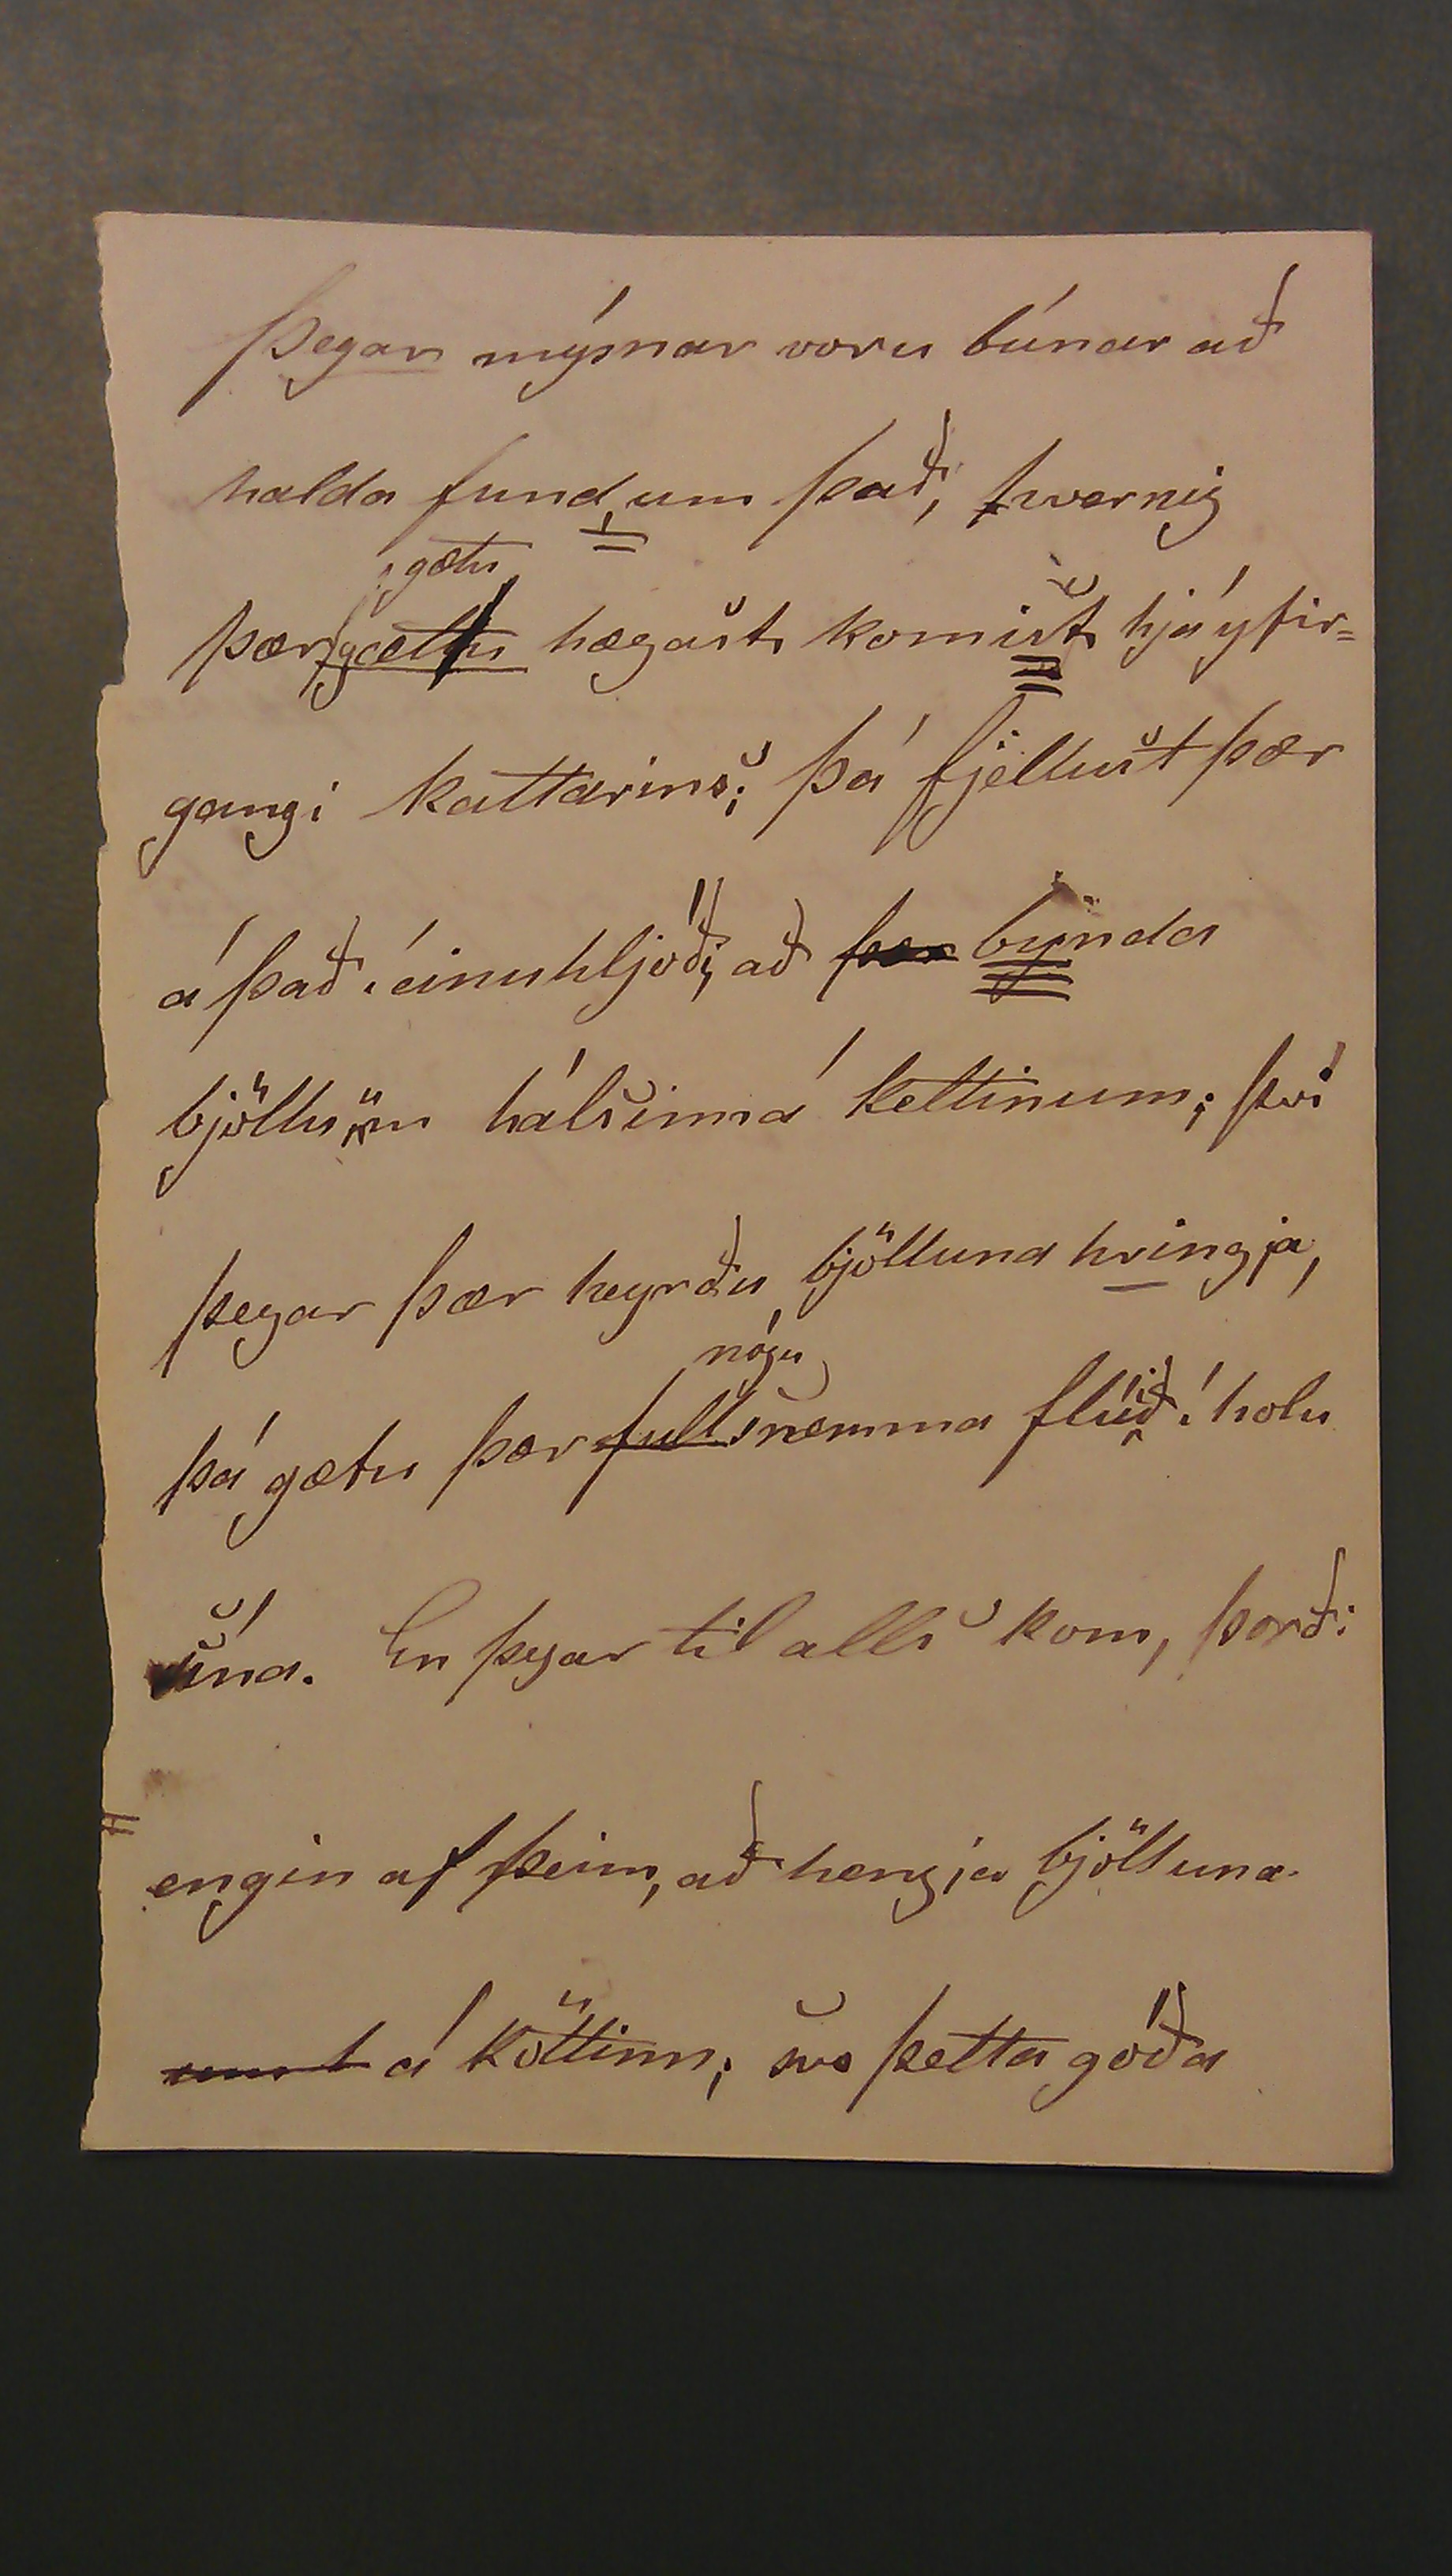 Þegar mýsnar voru búnar að
halda fund, um það, hvernig
gætu
þær gættu hægast komist hjá yfir=
gangi kattarins; þá fjellust þær
á það í einu hljóði, að þær bynda
bjöllu um hálsinn á kettinum; því
þegar þær heyrðu bjölluna hringja,
nógu
þá gætu þær full snemma flúið í holu
sína. En þegar til alls kom, þorði
engin af þeim, að hengja bjölluna
á köttinn; svo þetta góða